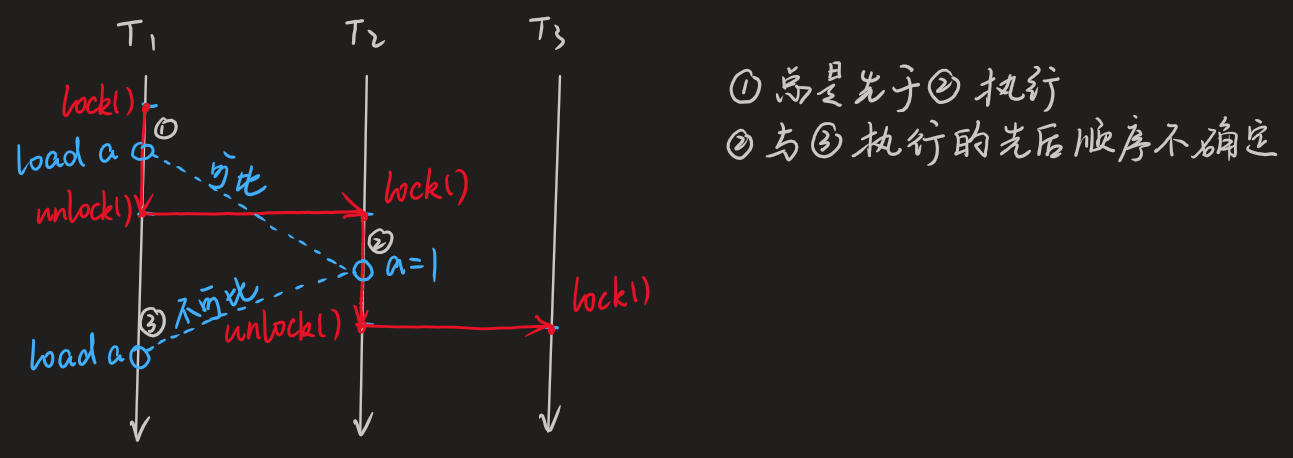 T1 T2 T3
lock()
①
load a
可比
unlock()
lock()
②
a=1
不可比
③
unlock()
lock()
load a
①总是先于②执行
②与③执行的先后顺序不确定